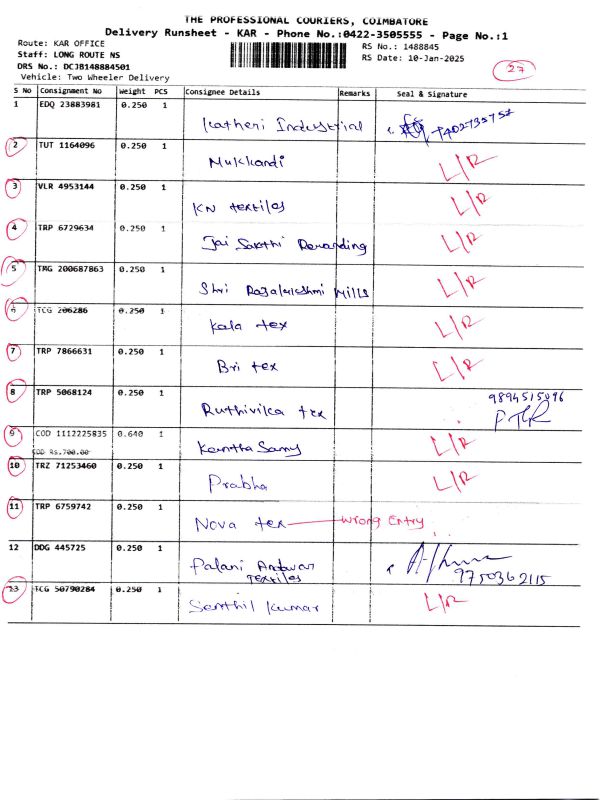 THE PROFESSIONAL COURIERS, COIMBATORE
Delivery Runsheet - KAR - Phone No.:0422-3505555 - Page No.:1
Route: KAR OFFICE
RS No.: 1488845
Staff: LONG ROUTE NS
RS Date: 10-Jan-2025
DRS No.: DCJB148884501
27
Vehicle: Two Wheeler Delivery
S No Consignment No Weight PCS Consignee Details Remarks Seal & Signature
1 EDQ 23883981 0.250 1
Katheri Industrial
2 TUT 1164096 0.250 1
Mukkandi L/R
3 VLR 4953144 0.250 1
KN textiles L/R
4 TRP 6729634 0.250 1
Jai Sakthi L/R
5 TMG 200687863 0.250 1
Shri Rajalakshmi Mills L/R
6 TCG 206286 0.250 1
Kala tex L/R
7 TRP 7866631 0.250 1
Bri tex L/R
8 TRP 5068124 0.250 1
9894515096
Ruthivika tex
9 COD 1112225835 0.640 1
COD Rs.700.00
Kantha Samy L/R
10 TRZ 71253460 0.250 1
Prabha L/R
11 TRP 6759742 0.250 1
Nova tex Wrong Entry
12 DDG 445725 0.250 1
Palani Andavar
textiles
9750362115
13 TCG 50790284 0.250 1
Senthil Kumar L/R